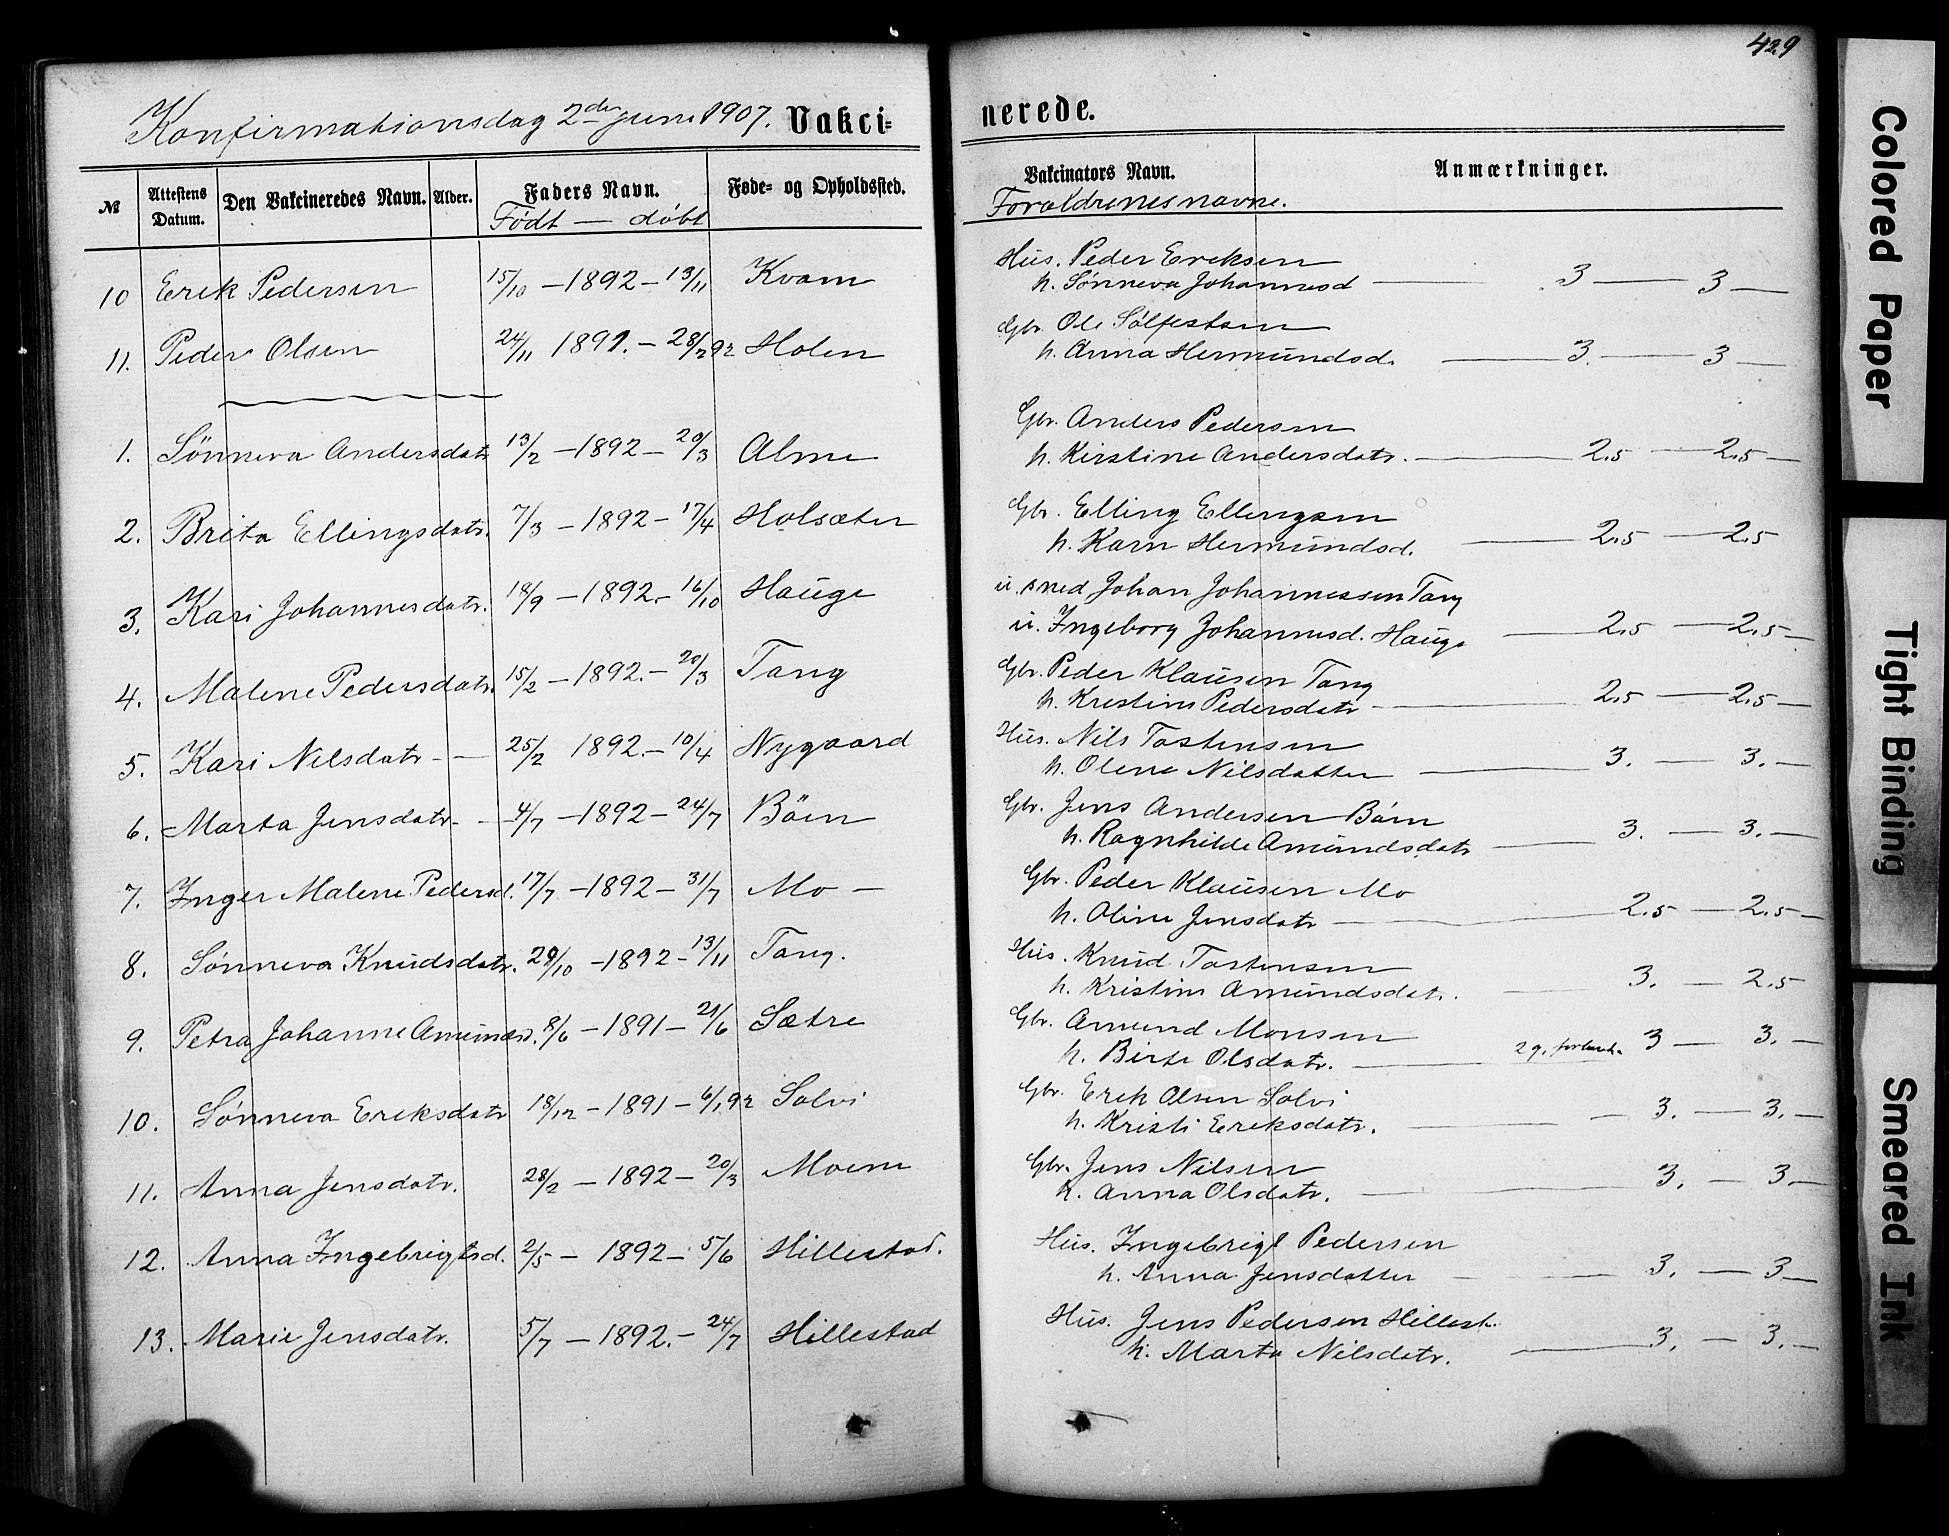 429
Konfirmationsdag 2den juni 1907. Vakci= nerede.
№ Attestens Datum. Den Vakcineredes Navn. Alder. Faders Navn. Føde= og Opholdssted. Vakcinators Navn. Anmærkninger.
Født — døbt Forældrenes navne.
10 Erik Pedersen 15/10 — 1892 — 13/11 Kvam
Hus. Peder Eriksen
h. Sønneva Johannesd — 3 — 3 —
11. Peder Olsen 24/11 1891. — 28/2 92 Holen
Gbr. Ole Solfestsen
h. Anna Hermundsd. — 3. — 3 —
1. Sønneva Andersdatr 13/2 — 1892 — 20/3 Alme
Gbr. Anders Pedersen
h. Kirstine Andersdatr. — 2.5 — 2.5 —
2. Brita Ellingsdatr. 7/3 — 1892 — 17/4 Holsæter
Gbr. Elling Ellingsen
h. Kari Hermundsd. — 2.5 — 2.5
3. Kari Johannesdatr. 18/9 — 1892. — 16/10 Hauge
u. smed Johan Johannessen Tang
u. Ingeborg Johannesd. Hauge — 2.5 — 2.5 —
4. Malene Pedersdatr. 15/2 — 1892. — 20/3 Tang
Gbr. Peder Klausen Tang
h. Kristine Pedersdatr — 2.5 — 2.5 —
5. Kari Nilsdatr — 25/2 1892. — 10/4 Nygaard
Hus. Nils Tostensen
h. Oline Nilsdatter — 3. — 3. —
6. Marta Jensdatr — 4/7 — 1892 — 24/7 Böen
Gbr. Jens Andersen Böen
h. Ragnhilde Amundsdatr — 3. — 3. —
7. Inger Malene Pedersd. 17/7 — 1892 — 31/7 Mo —
Gbr. Peder Klausen Mo
h. Oline Jensdatr — 2.5 — 2.5 —
8. Sønneva Knudsdatr. 29/10 — 1892 — 13/11 Tang.
Hus. Knud Tostensen
h. Kristine Amundsdatr. — 3. — 2.5
9. Petra Johanne Amundsd. 8/6 — 1891 — 21/6 Sætre
Gbr. Amund Monsen
h. Birte Olsdatr. — 2 g. 3 — 3. —
10. Sønneva Eriksdatr 18/12 — 1891 — 6/1 92 Solvi
Gbr. Erik Olsen Solvi
h. Kristi Eriksdatr. — 3. — 3. —
11. Anna Jensdatr. 28/2 — 1892 — 20/3 Moene
Gbr. Jens Nilsen
h. Anna Olsdatr. — 3. — 3. —
12. Anna Ingebrigtsd. 2/5 — 1892 — 5/6 Hillestad.
Hus. Ingebrigt Pedersen
h. Anna Jensdatter — 3. — 3 —
13. Marie Jensdatr. 5/7 — 1892. — 24/7 Hillestad
Hus. Jens Pedersen Hillest.
h. Marta Nilsdatr. — 3. — 3. —
Colored Paper
Tight Binding
Smeared Ink